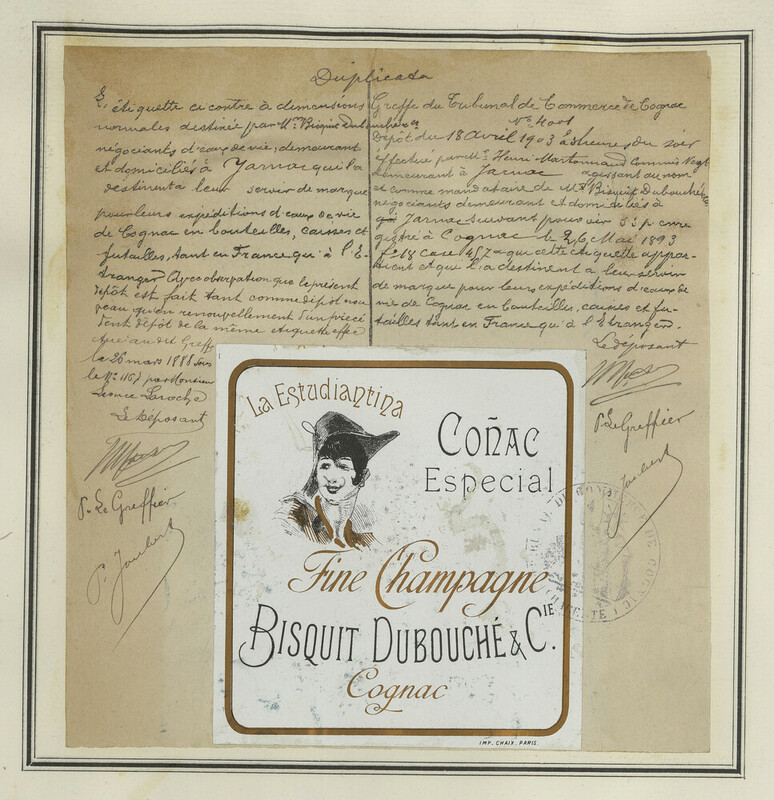 Duplicata
L'étiquette ci contre à dimensions
normales destinée par Mrs Bisquit Dubouché & Cie
négociants d'eaux de vie, demeurant
et domiciliés à Jarnac qui la
destinent à leur servir de marque
pour leurs expéditions d'eaux de vie
de Cognac en bouteilles, caisses et
futailles, tant en France qu'à l'É-
tranger. Avec observation que le présent
dépôt est fait tant comme dépôt nou
veau qu'en renouvellement d'un précé
dent dépôt de la même étiquette effec
tué au dit Greffe
le 26 mars 1888 sous
le No 1167 par Monsieur
Léonce Laroche
Le Déposant
P. Le Greffier
P. Joubert
Greffe du Tribunal de Commerce de Cognac
No 4001
Dépôt du 18 avril 1903 à heures du soir
effectué par Mr Henri Martonnaud Commis Négt
demeurant à Jarnac agissant au nom
et comme mandataire de Mrs Bisquit Dubouché & Cie
négociants demeurant et domiciliés à
Jarnac suivant pouvoir s.s.p enre
gistré à Cognac le 26 Mai 1893
fo 18 case 457 que cette étiquette appar-
tient et qui la destinent à leur servir
de marque pour leurs expéditions d'eaux de
vie de Cognac en bouteilles, caisses et fu-
tailles tant en France qu'à l'Étranger.
Le déposant
P. Le Greffier
Joubert
La Estudiantina
Coñac
Especial
Fine Champagne
Bisquit Dubouché & Cie.
Cognac
IMP. CHAIX. PARIS.